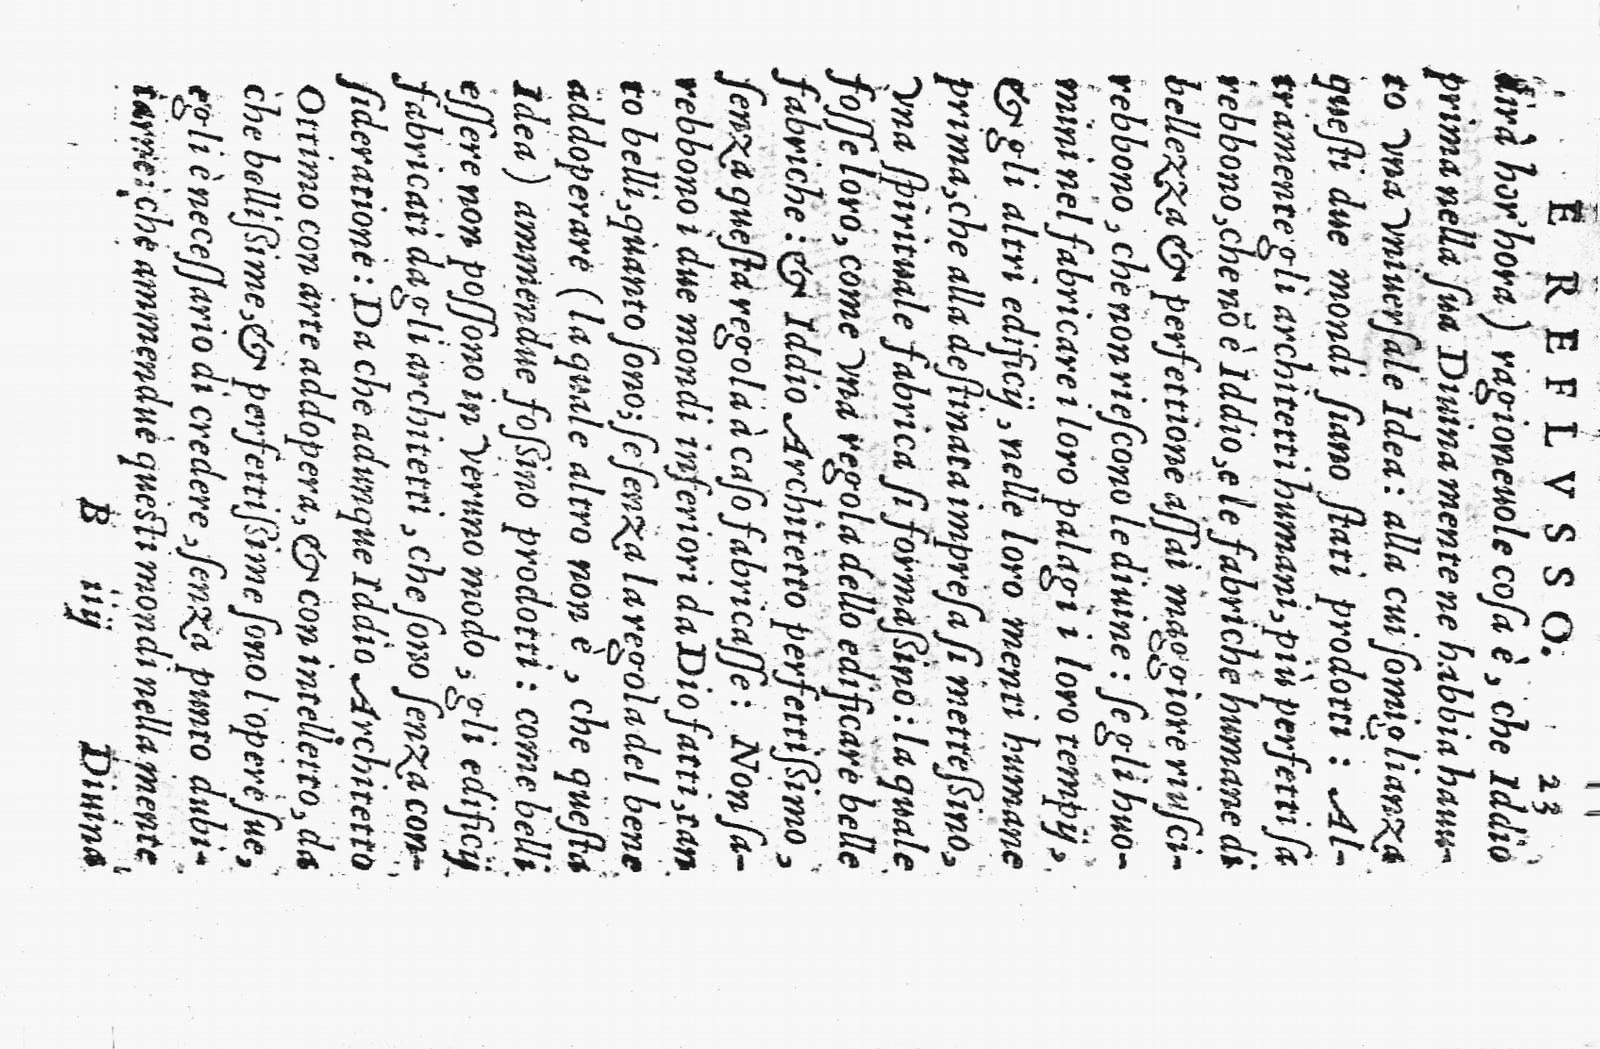 E REFLVSSO. 23
dirà hor'hora) ragioneuole coſa è, che Iddio
prima nella ſua Diuina mente ne habbia hauu-
to vna vniuerſale Idea: alla cui ſomiglianza
queſti due mondi ſiano ſtati prodotti: Al-
tramente gli architetti humani, più perfetti ſa
rebbono, che nõ è Iddio, e le fabriche humane di
bellezza & perfettione aſſai maggiore riuſci-
rebbono, che non rieſcono le diuine: ſe gli huo-
mini nel fabricare i loro palagi i loro tempij,
& gli altri edificij, nelle loro menti humane
prima, che alla deſtinata impreſa ſi metteſſino,
vna ſpirituale fabrica ſi formaſſino: la quale
foſſe loro, come vna regola dello edificare belle
fabriche: & Iddio Architetto perfettiſſimo,
ſenza queſta regola à caſo fabricaſſe: Non ſa-
rebbono i due mondi inferiori da Dio fatti, tan
to belli, quanto ſono; ſe ſenza la regola del bene
addoperare (la quale altro non è, che queſta
Idea) ammendue foſſino prodotti: come belli
eſſere non poſſono in verumo modo, gli edificij
fabricati da gli architetti, che ſono ſenza con-
ſideratione: Da che adunque Iddio Architetto
Ottimo con arte addopera, & con intelletto, da
che belliſſime, & perfettiſſime ſono l'opere ſue,
egli è neceſſario di credere, ſenza punto dubi-
tarne: che ammendue queſti mondi nella mente
B iij Diuina